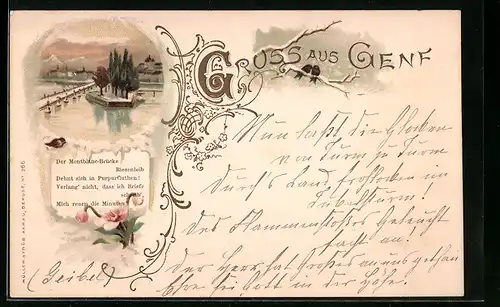 GRUSS AUS GENF
Der Montblanc-Brücke
Riesenleib
Dehnt sich in Purpurfluthen!
Verlang' nicht, dass ich Briefe
schreib',
Mich reuen die Minuten
Nun laßt die Glocken
von Turm zu Turm
Durch's Land frohlocken im
Jubelsturm!
Des Flammenstoßes Geleucht
facht an!
Der Herr hat Großes an uns gethan
Ehre sei Gott in der Höhe.
(Geibel)